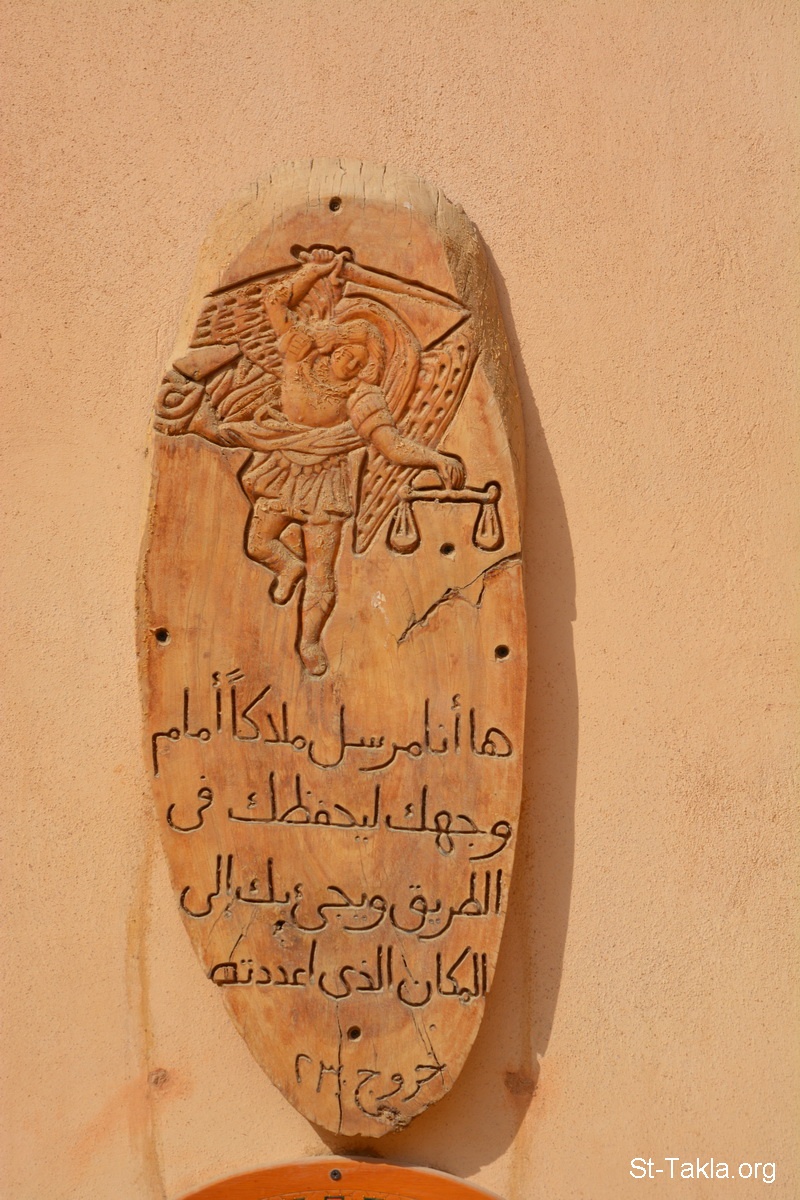 ها أنا مرسل ملاكاً أمام
وجهك ليحفظك فى
الطريق ويجئ بك إلى
المكان الذى اعددته
خروج ٢٣
St-Takla.org